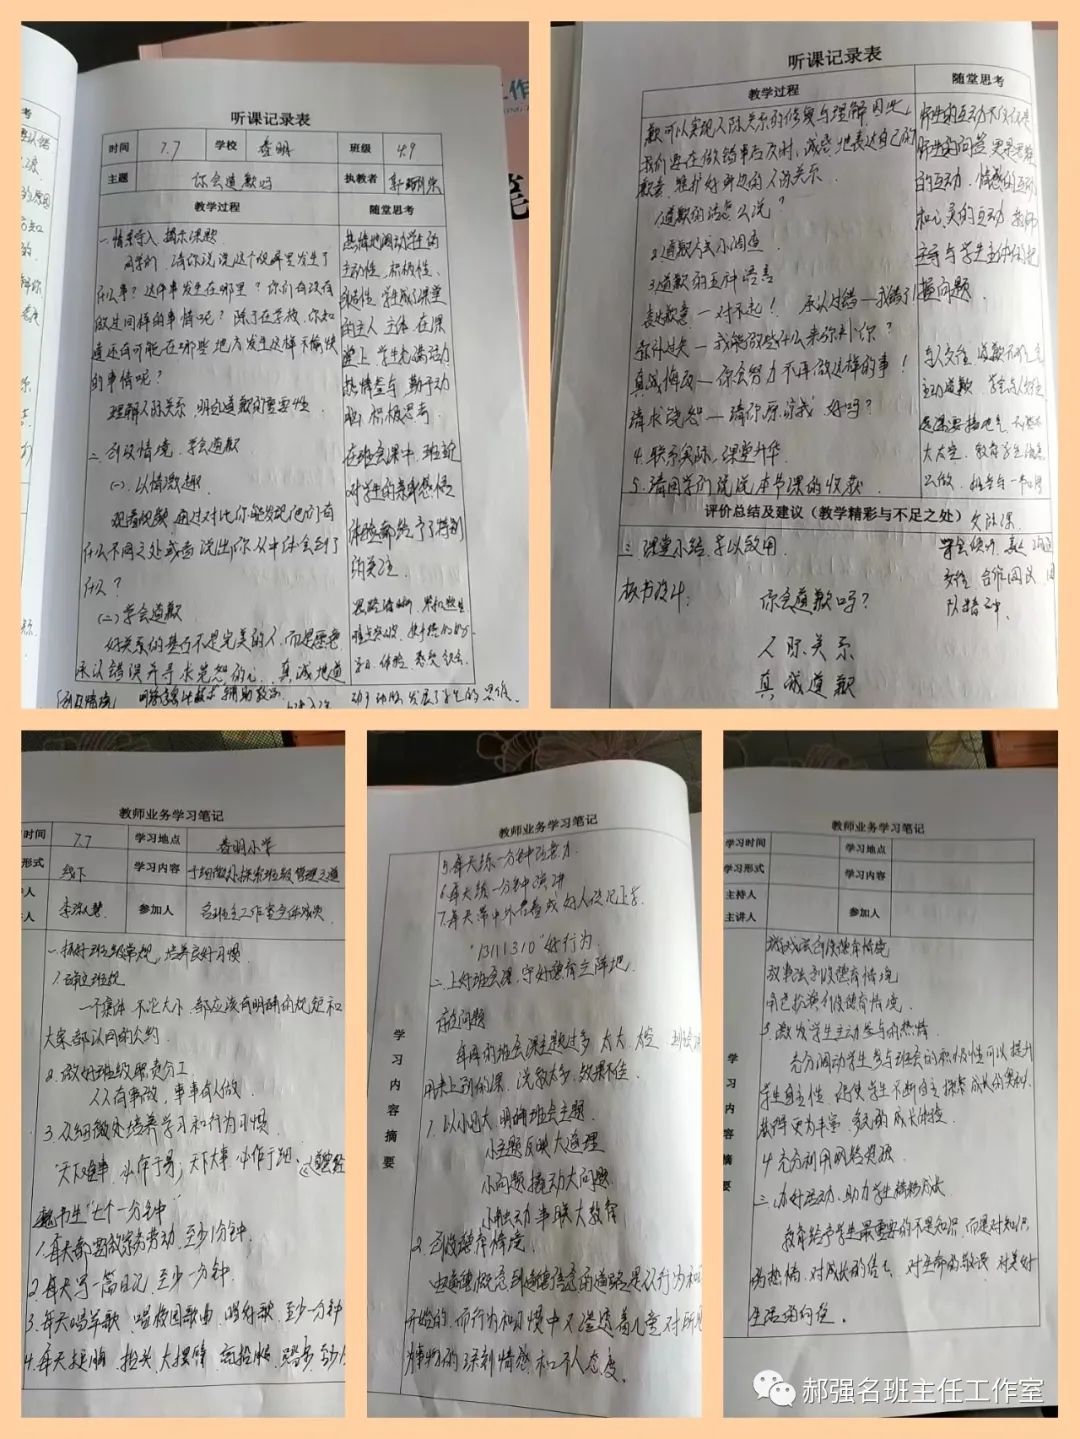 听课记录表
时间 7.7 学校 春明 班级 4.9
主题 你会道歉吗 执教者
教学过程 随堂思考
一.情景导入 揭示课题
同学们，请你说说这个故事里发生了
什么事？这件事发生在哪里？你们有没有
做过同样的事情呢？除了在学校，你知
道还有可能在哪些地方发生这样不愉快
的事情呢？
理解人际关系，明白道歉的重要性
二.创设情境，学会道歉
(一).以情激趣
观看视频，通过对比你能发现他们有
什么不同之处或者说出你从中体会到了
什么？
(二)学会道歉
好关系的基石不是完美的人，而是愿意
承认错误并寻求宽恕的心，真诚地道
热情地调动学生的
主动性、积极性、
创造性，学生成了课堂
的主人 主体，在课
堂上，学生充满活力
热情参与，勤于动
脑 积极思考
在班会课中，班主
对学生的亲身感悟
体验都给予了特别
的关注
听课记录表
教学过程 随堂思考
歉可以实现人际关系的修复与理解，因此，
我们要在做错事后及时、诚恳地表达自己的
歉意，维护好身边的人际关系.
1.道歉的话怎么说？
2.道歉方式小调查
3.道歉的五种语言
表达歉意—对不起！ 承认过错—我错了！
弥补过失—我能做些什么来弥补你？
真诚悔改—你会努力不再做这样的事！
请求饶恕—请你原谅我，好吗？
4.联系实际，课堂升华
5.请同学们说说本节课的收获.
师生的互动不仅仅是
师生的问答，更是思维
的互动，情感的互动
和心灵的互动，教师
主导与学生主体的把
握问题.
评价总结及建议（教学精彩与不足之处）
三.课堂小结，学以致用.
板书设计：
你会道歉吗？
人际关系
真诚道歉
教师业务学习笔记
时间 7.7 学习地点 春明小学
形式 线下 学习内容 于细微处探索班级管理之道
参加人 名班主任工作室全体成员
一.抓好班级常规，培养良好习惯
1.确立班规
一个集体，不论大小，都应该有明确的规矩和
大家都认同的公约
2.做好班级职责分工
人人有事做，事事有人做
3.从细微处培养学习和行为习惯
“天下难事，必作于易，天下大事，必作于细.
魏书生“七个一分钟”
1.每天都要做家务劳动，至少1分钟.
2.每天写一篇日记，至少一分钟.
3.每天唱军歌、唱校园歌曲、唱好歌，至少一分钟
4.每天挺胸、抬头、大摆臂、高抬腿、踢步
教师业务学习笔记
学习内容摘要
5.每天练一分钟注意力.
6.每天练一分钟演讲
7.每天学中外名著或好人传记上学
“13111310”好行为
二.上好班会课，守好德育主阵地.
存在问题
每周的班会课主题过多，太大、太空，
用来上别的课，说教太多，效果不佳.
1.以小见大，明确班会主题.
小主题反映大道理
小问题撬动大问题
小触动串联大教育
2.创设德育情境.
由道德概念到道德信念的道路是从行为和
开始的，而行为和习惯中又渗透着儿童对所
为事物的深刻情感和个人态度.
教师业务学习笔记
学习时间 学习地点
学习形式 学习内容
主持人
主讲人 参加人
学习内容摘要
游戏法创设德育情境
故事法创设德育情境
角色扮演创设德育情境.
3.激发学生主动参与的热情.
充分调动学生参与班会的积极性可以提升
学生自主性，促使学生不断自主探索成长的奥秘，
获得更为丰富、多元的成长体验.
4.充分利用网络资源.
三.办好活动，助力学生精彩成长
教育给予学生最重要的不是知识，而是对知识
的热情，对成长的信心，对生命的敬畏，对美好
生活的向往.
郝强名班主任工作室